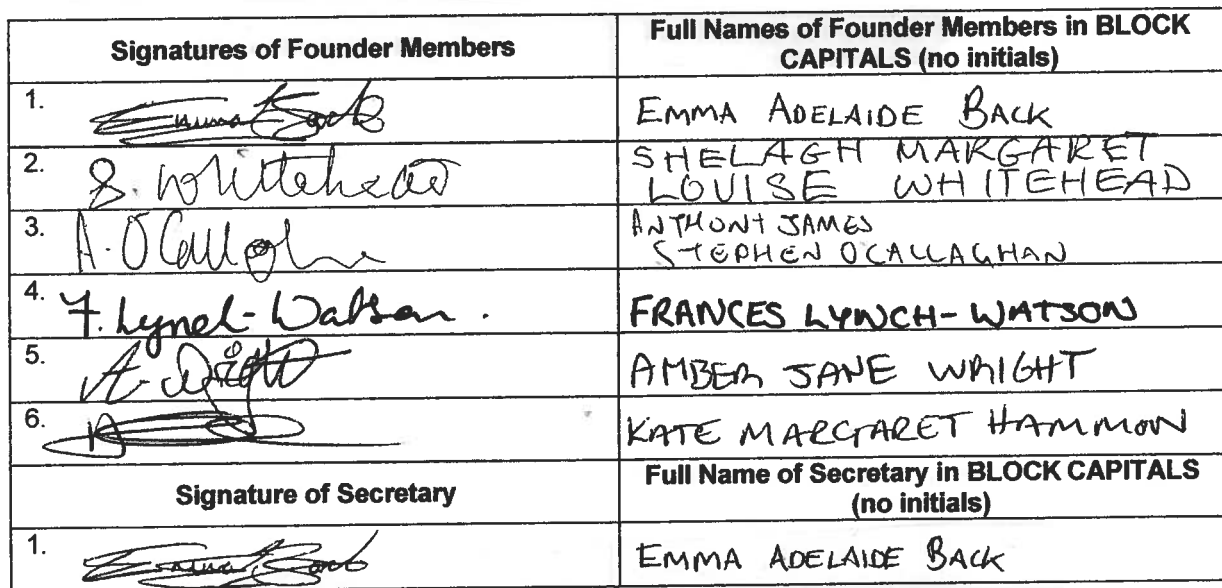 Signatures of Founder Members
Full Names of Founder Members in BLOCK
CAPITALS (no initials)
1.
Emma Back
EMMA ADELAIDE BACK
2.
S. Whitehead
SHELAGH MARGARET
LOUISE WHITEHEAD
3.
A. O'Callaghan
ANTHONY JAMES
STEPHEN OCALLAGHAN
4.
F. Lynch-Watson.
FRANCES LYNCH-WATSON
5.
A. Wright
AMBER JANE WRIGHT
6.
KATE MARGARET HAMMON
Signature of Secretary
Full Name of Secretary in BLOCK CAPITALS
(no initials)
1.
Emma Back
EMMA ADELAIDE BACK